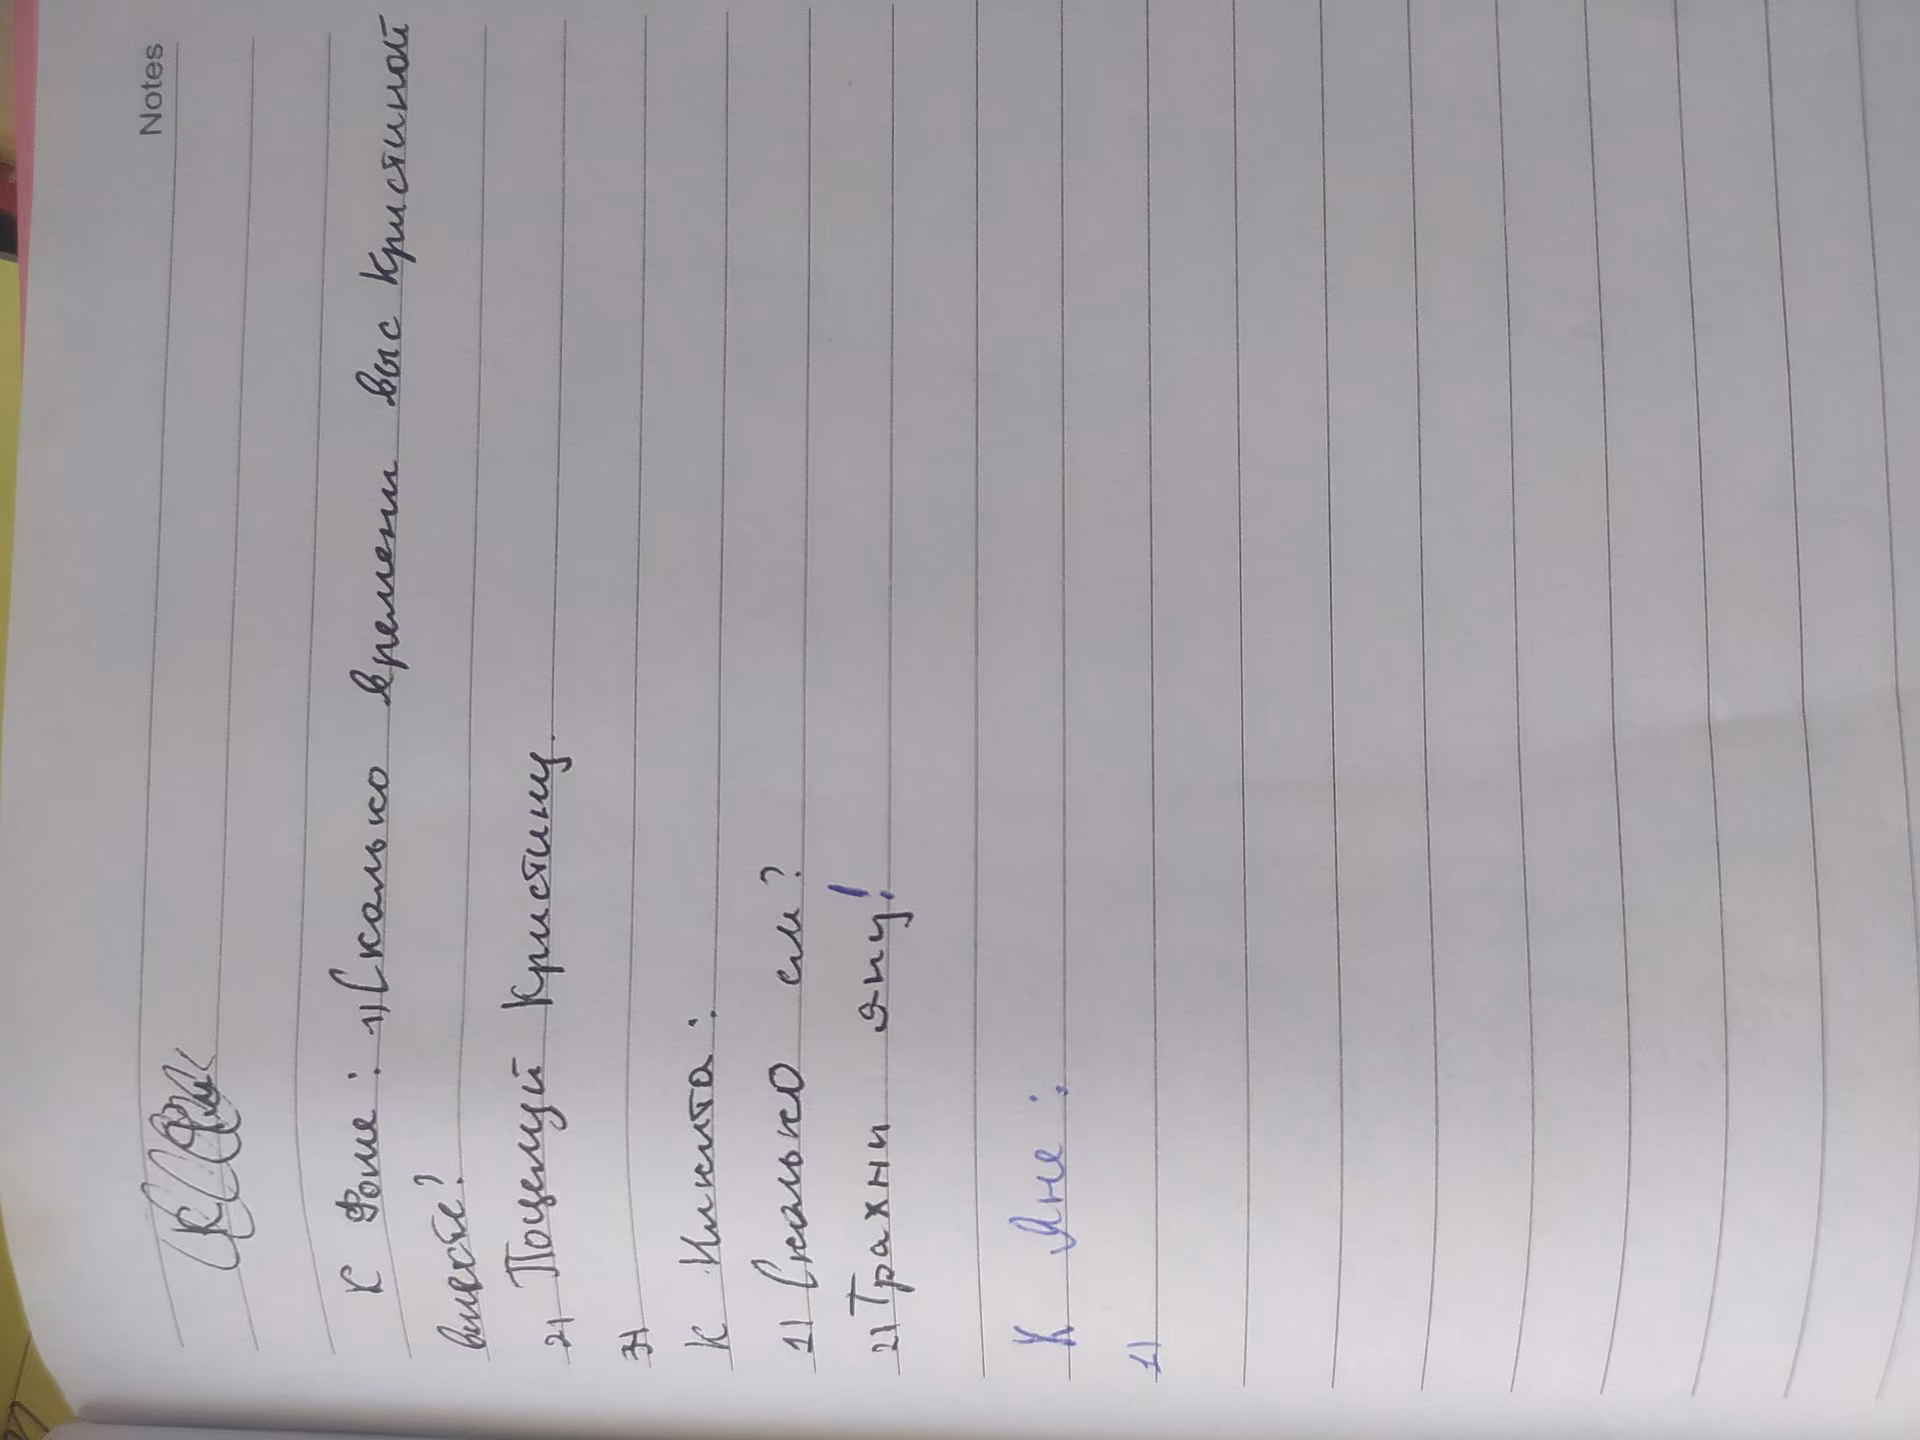 Notes
К Роме: 1) Сколько времени вы с Кристиной
вместе?
2) Поцемуй Кристину.
3)
К Никита:
1) Сколько см?
2) Трахни яну!
К Яне:
1)